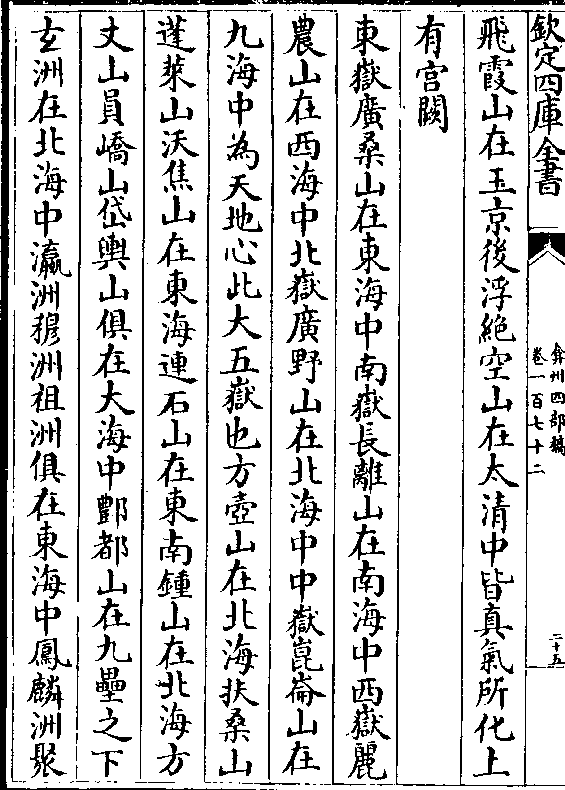 欽定四庫全書
弇州四部稿
卷一百七十二
二十五
飛霞山在玉京後浮絕空山在太清中皆真氣所化上
有宫闕
東嶽廣桑山在東海中南嶽長離山在南海中西嶽麗
農山在西海中北嶽廣野山在北海中中嶽崑崙山在
九海中為天地心此大五嶽也方壺山在北海扶桑山
蓬萊山沃焦山在東海連石山在東南鍾山在北海方
丈山員嶠山岱輿山俱在大海中酆都山在九壘之下
玄洲在北海中瀛洲穆洲祖洲俱在東海中鳳麟洲聚